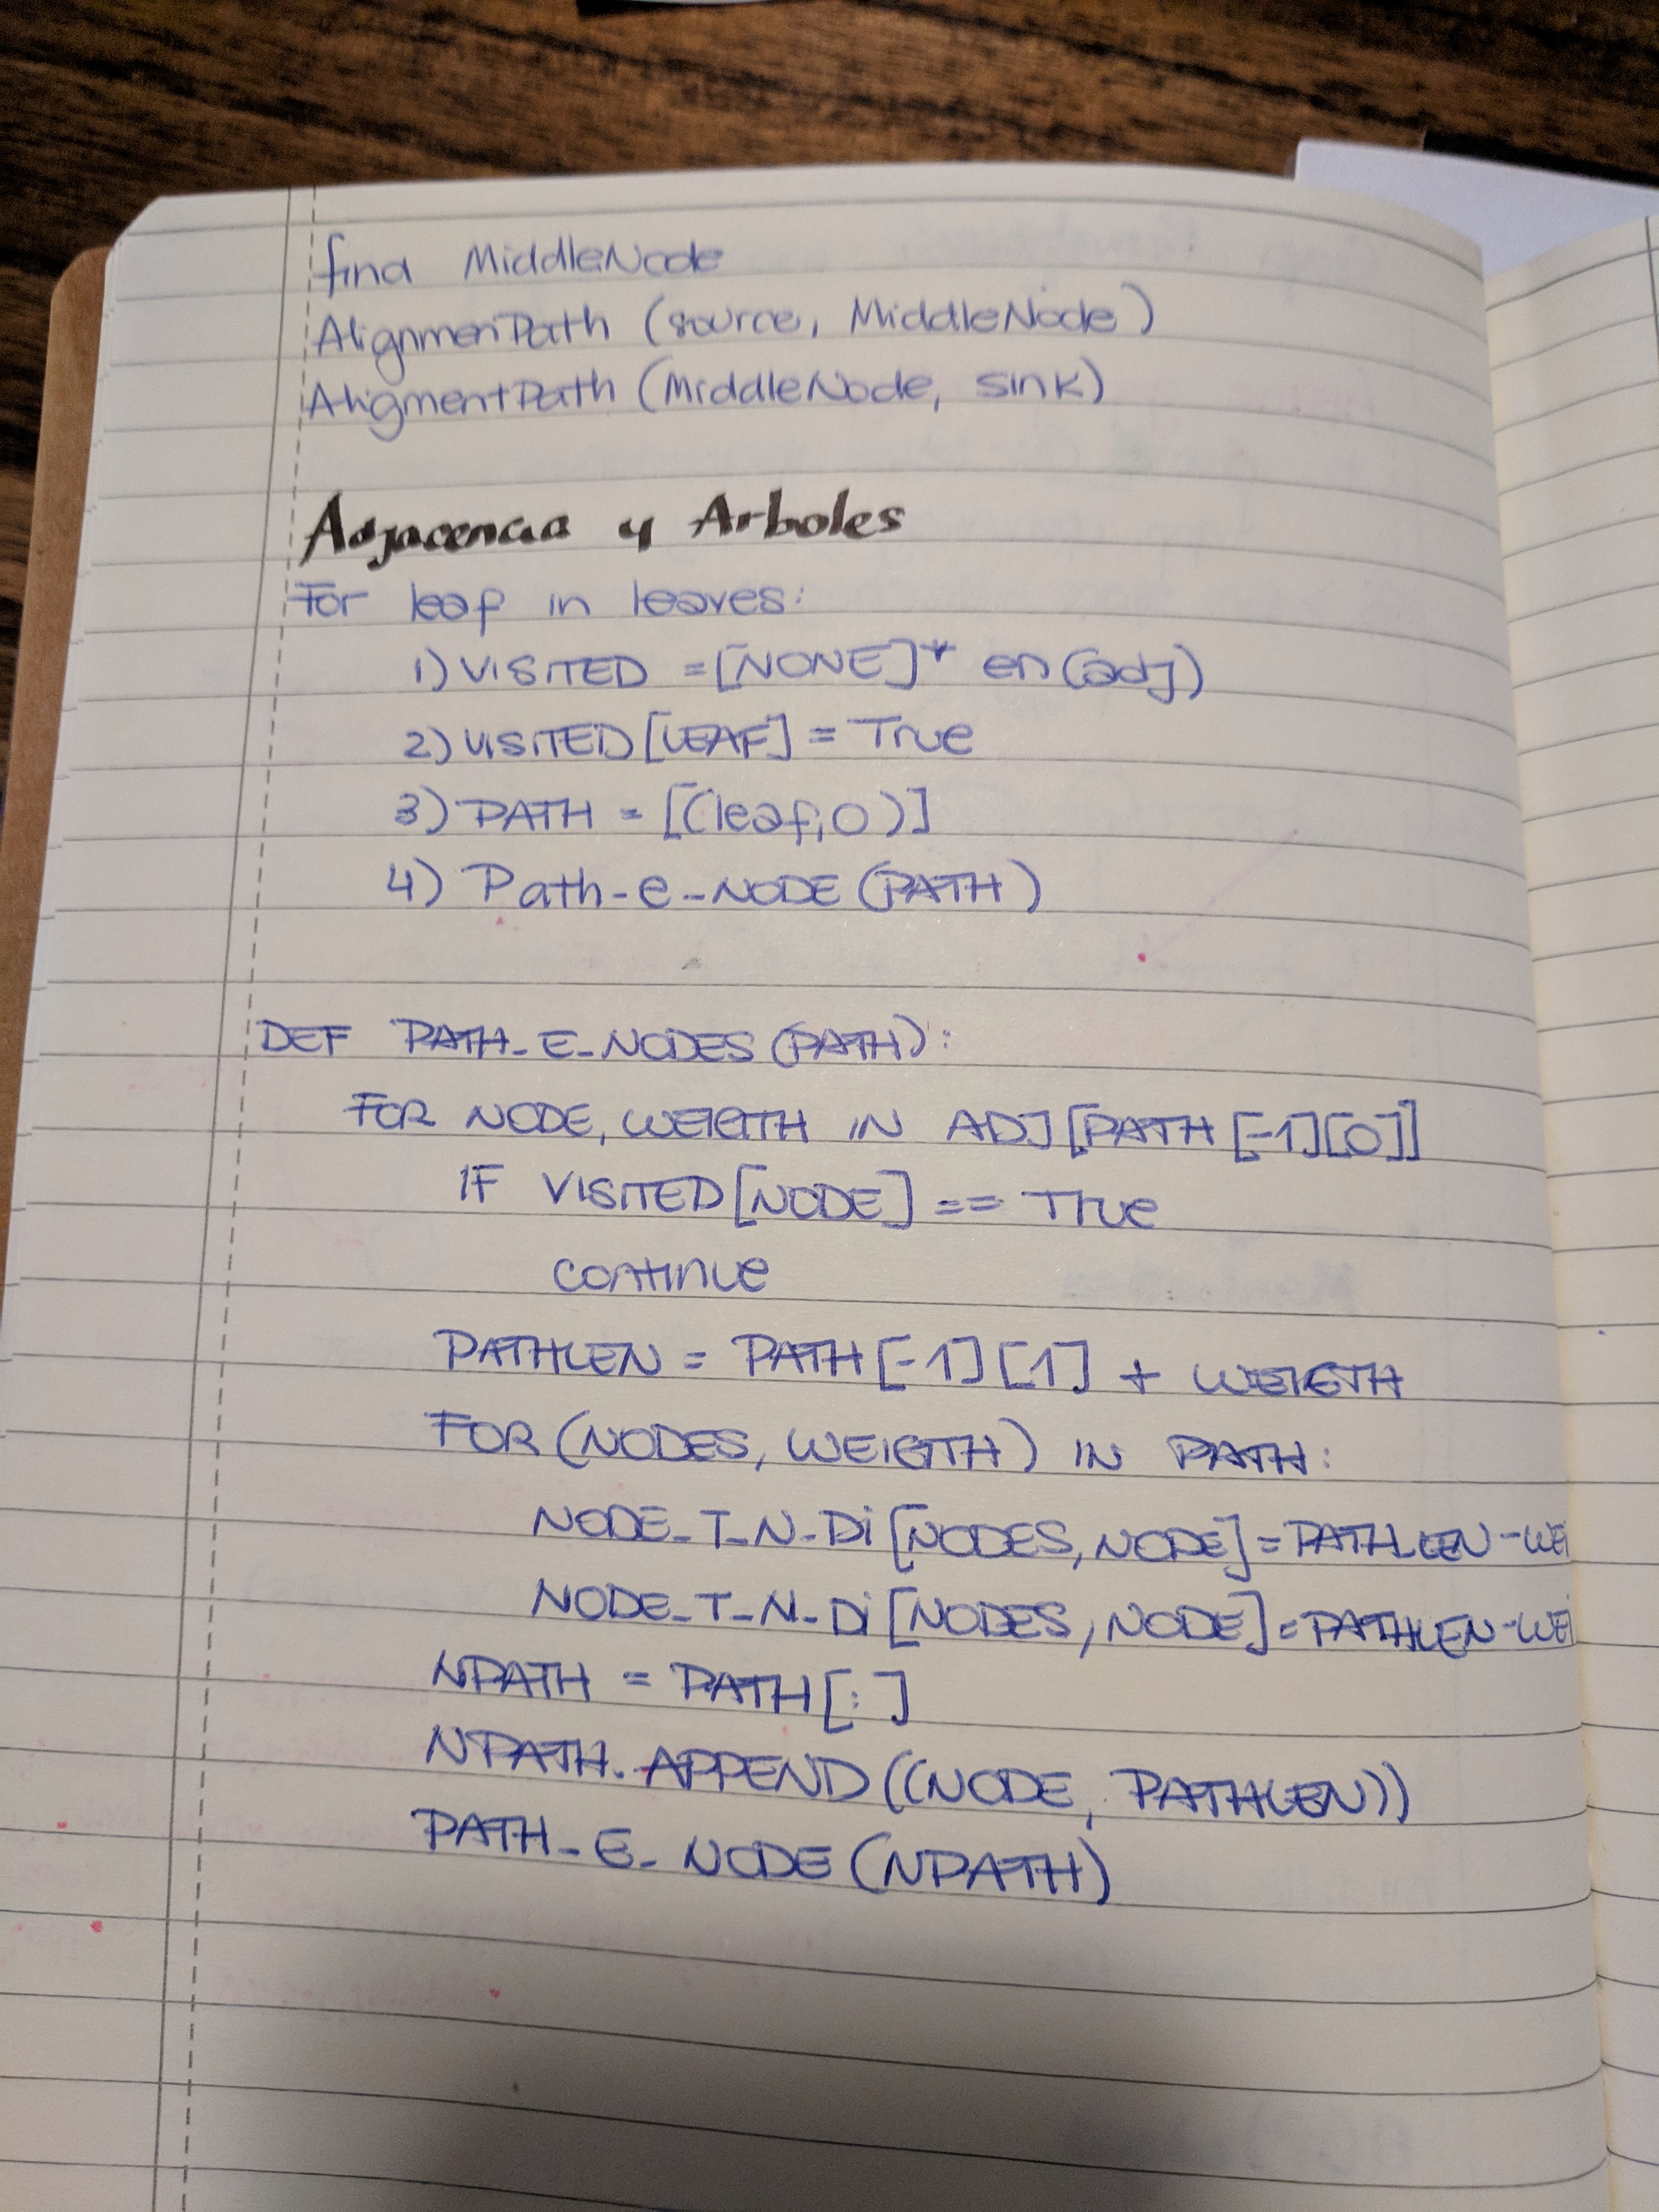 find MiddleNode
AlignmenPath (source, MiddleNode)
AligmentPath (MiddleNode, sink)
Adjacencia y Arboles
For leaf in leaves:
1) VISITED = [NONE]* en(adj)
2) VISITED[LEAF] = True
3) PATH = [(leaf,0)]
4) Path-e-NODE (PATH)
DEF PATH_E_NODES (PATH):
FOR NODE, WEIGTH IN ADJ[PATH[-1][0]]
IF VISITED[NODE] == True
continue
PATHLEN = PATH[-1][1] + WEIGTH
FOR (NODES, WEIGTH) IN PATH:
NODE_T_N_Di[NODES, NODE] = PATHLEN-WEI
NODE_T_N_Di[NODES, NODE] = PATHLEN-WEI
NPATH = PATH[:]
NPATH.APPEND((NODE, PATHLEN))
PATH_E_NODE (NPATH)